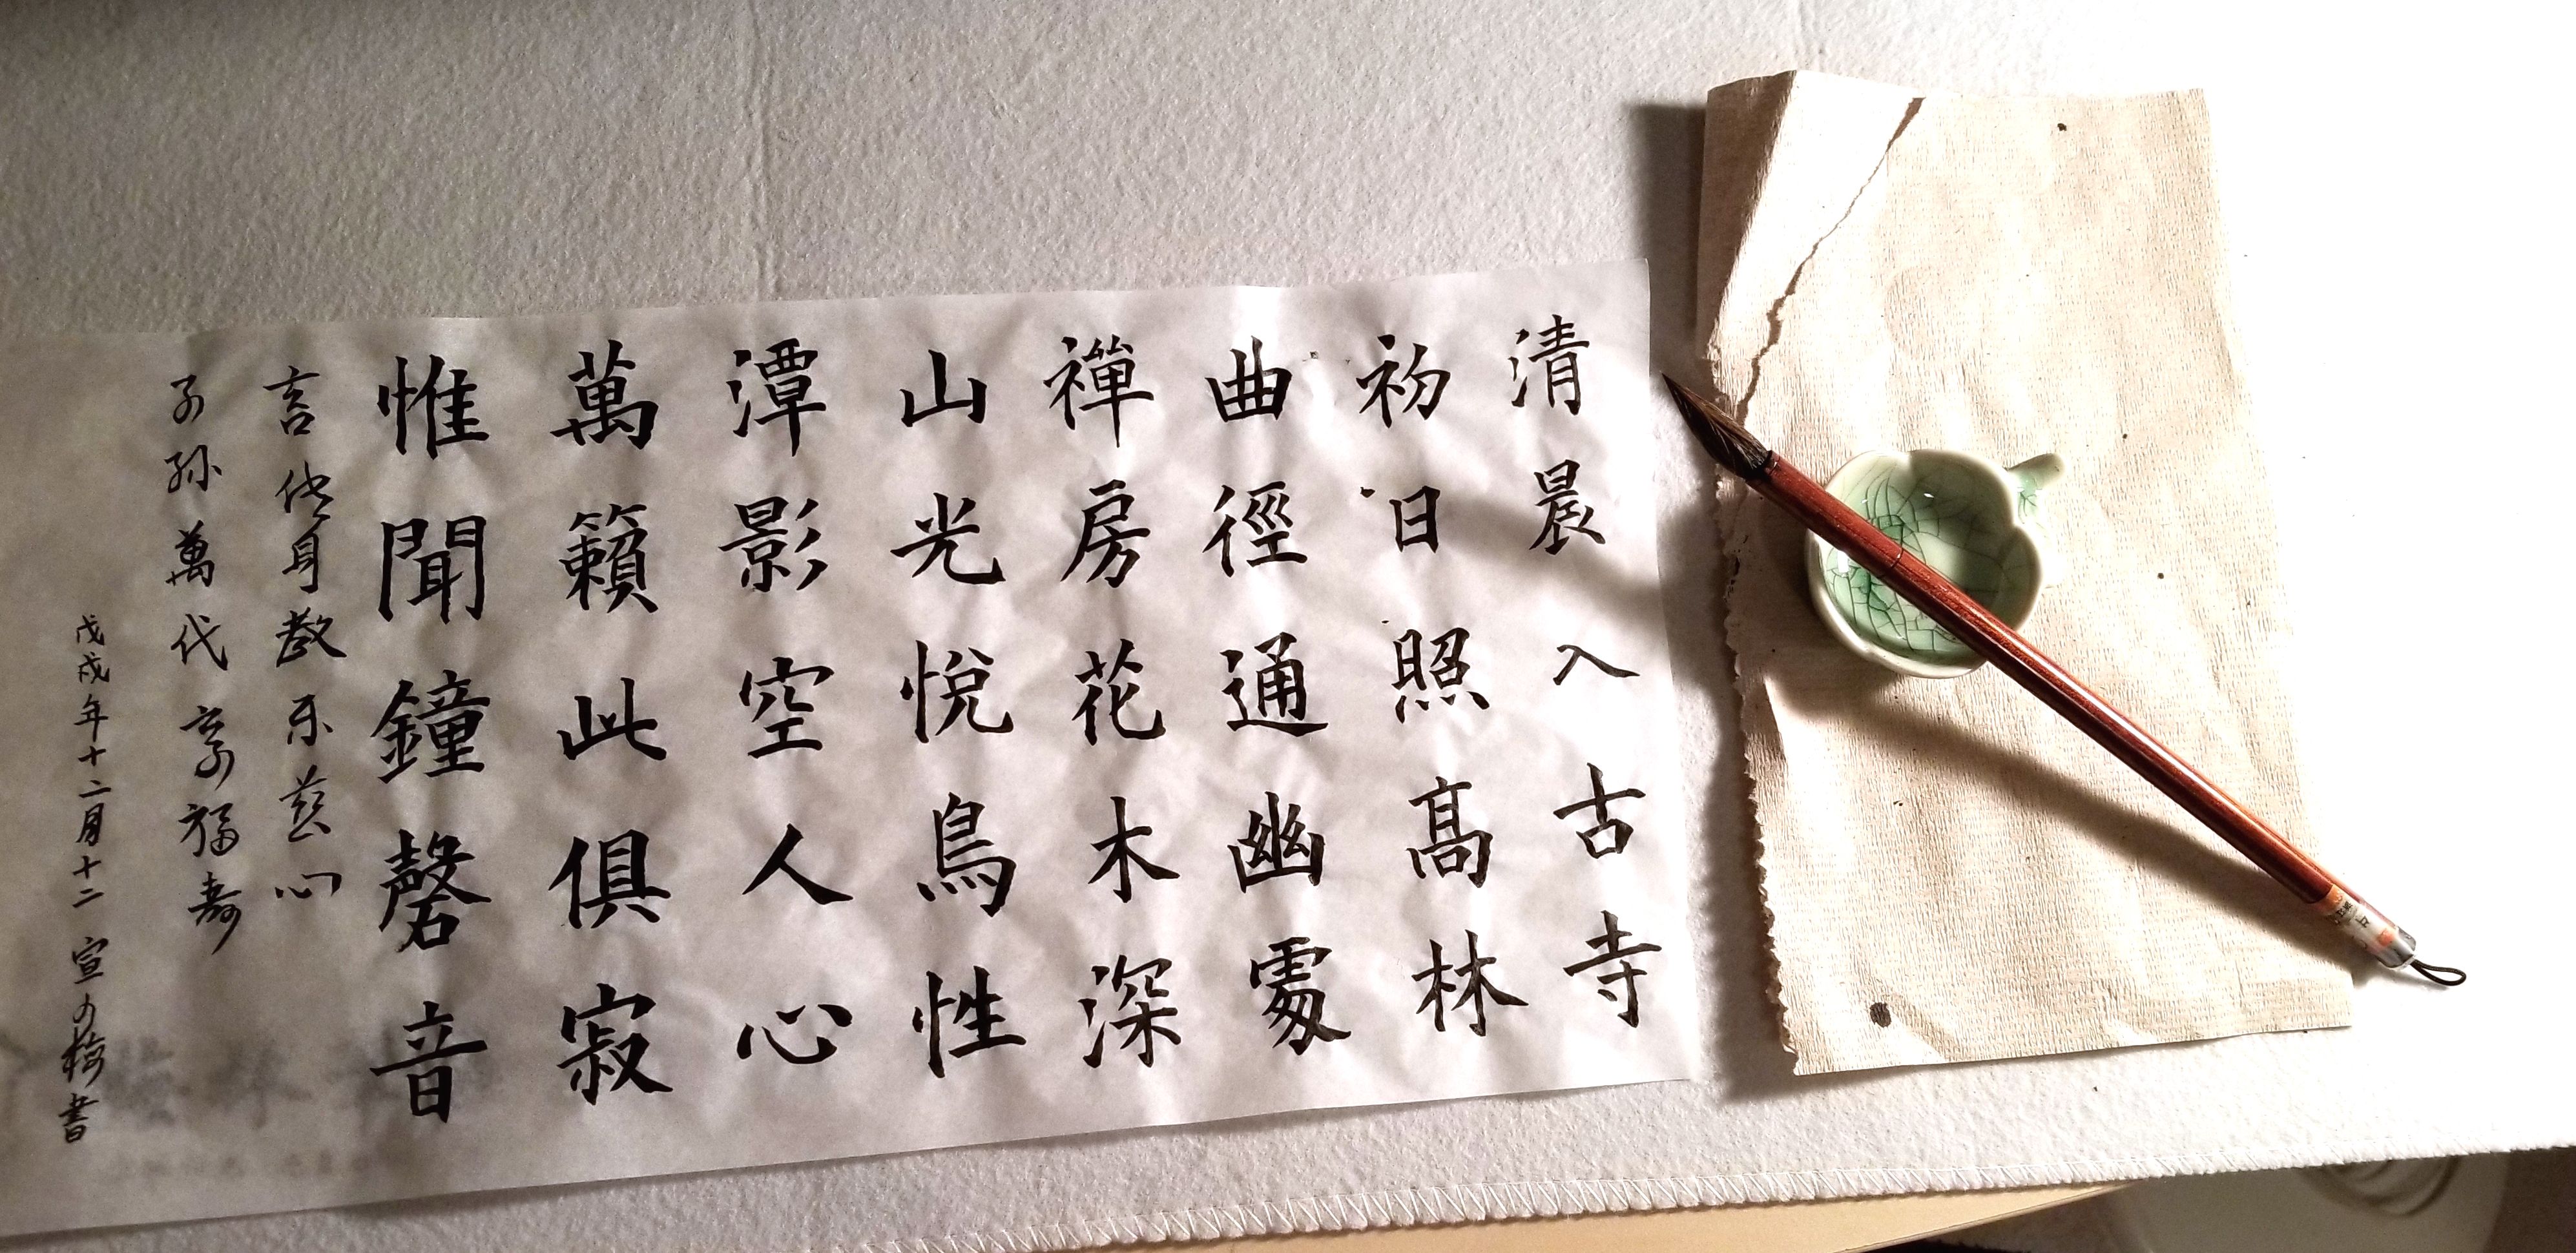 清晨入古寺
初日照高林
曲徑通幽處
禪房花木深
山光悅鳥性
潭影空人心
萬籟此俱寂
惟聞鐘磬音
言傳身教示慈心
子孫萬代享福壽
戊戌年十二月十二 宣小梅書